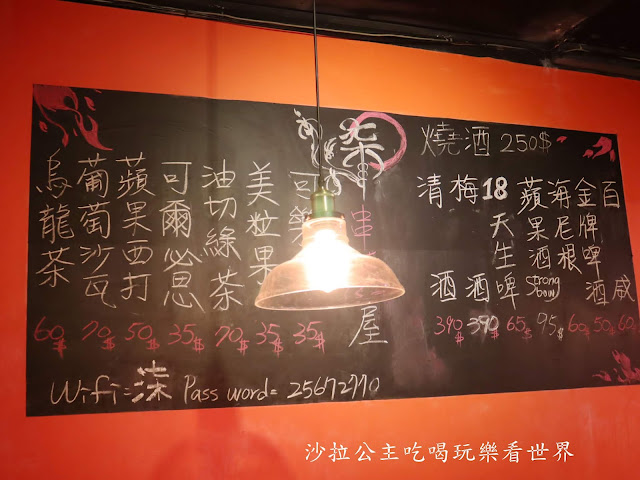 燒酒 250$
百威 60$
金牌啤酒 50$
海尼根 60$
蘋果酒 Strongbow 95$
18天生啤 65$
梅酒 390
清酒 390$
柒 串 屋
可樂 35$
美粒果 35$
油切綠茶 70$
可爾必思 35$
蘋果西打 50$
葡萄沙瓦 70$
烏龍茶 60$
Wifi=柒 Password= 25672770
沙拉公主吃喝玩樂看世界